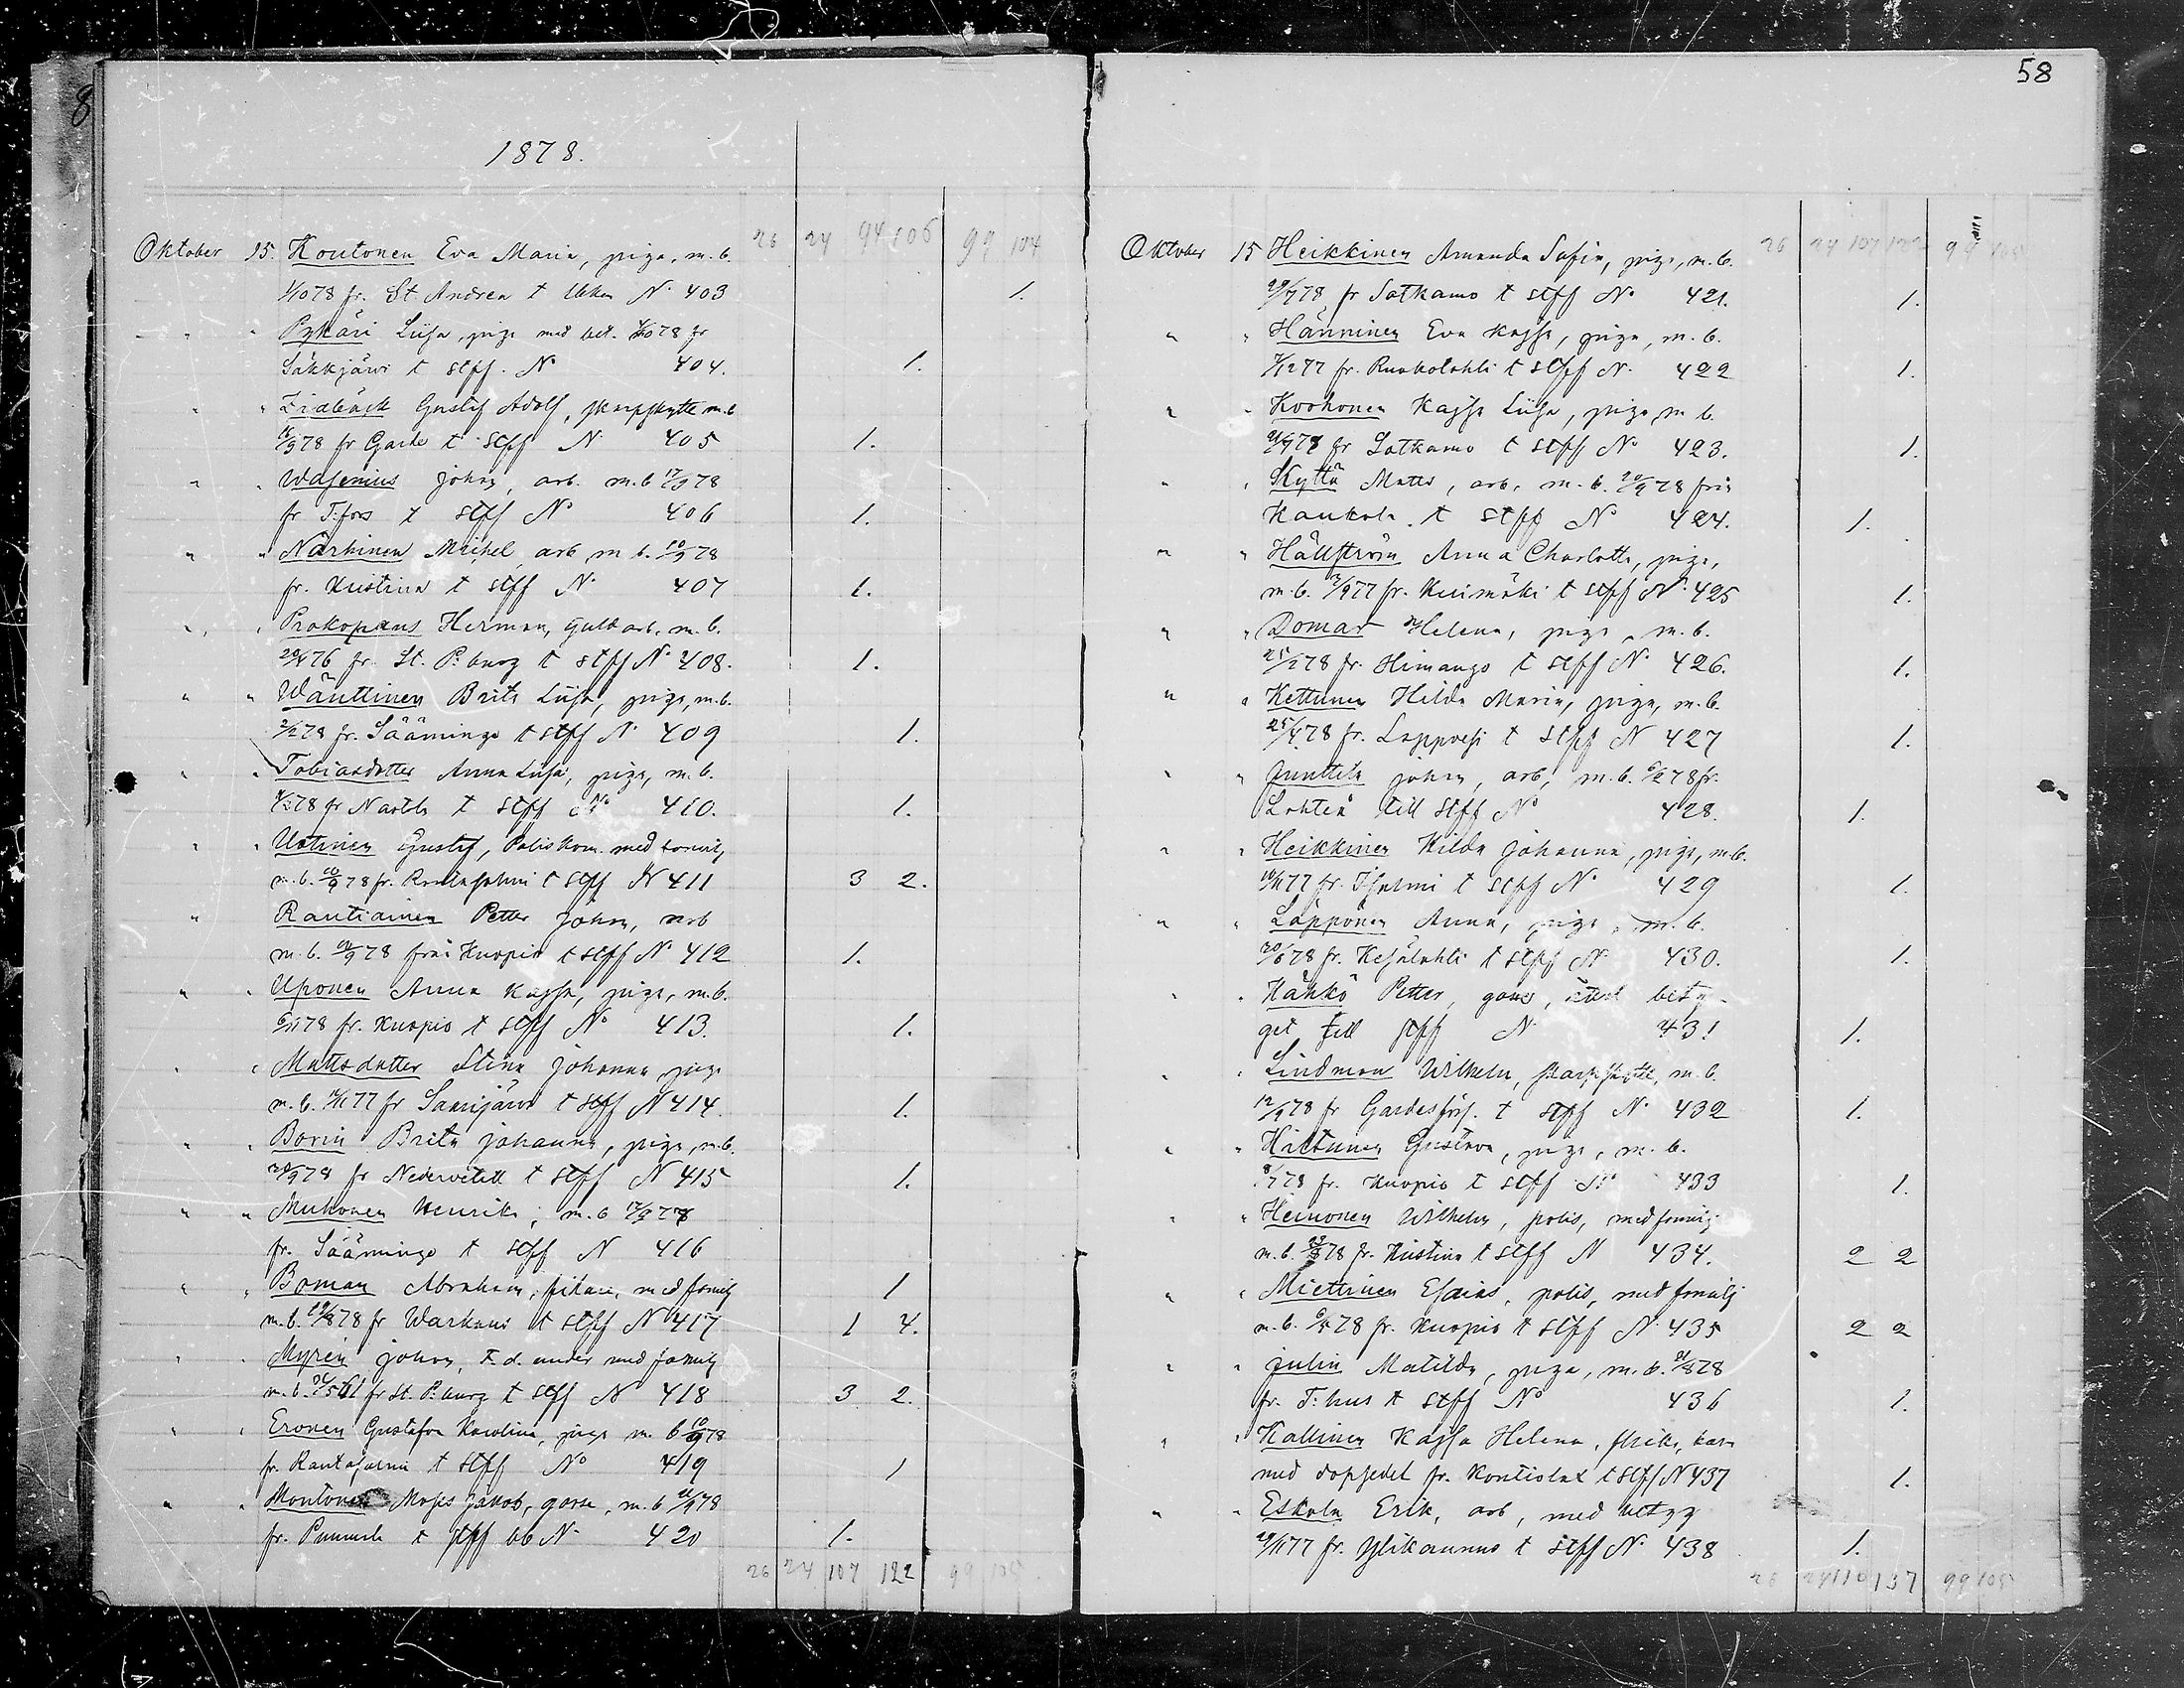 58
1878.
26 24 94 106 99 104
Oktober 15. Koutonen Eva Maria, piga, m. b.
1/10 78 fr. St. Andrea t Ukka No 403 1.
" " Pykäri Liisa, piga med bet. 1/10 78 fr
Säkkjärvi t stff. No 404. 1.
" " Zidbäck Gustaf Adolf, skarpskytte m. b
16/9 78 fr Garde t stff N 405 1.
" " Wasenius Johan, arb. m. b 17/9 78
fr T:fors t stff No 406 1.
" " Närhinen Mickel arb m. b. 10/9 78
fr. Kristina t stff No 407 1.
" " Prokopaeus Herman, Guldarb. m. b.
29/4 76 fr. St. P:burg t stff No 408. 1.
" " Wänttinen Brita Liisa, piga, m. b.
2/2 78 fr. Sääminge t stff N 409 1.
" " Tobiasdotter Anna Liisa, piga, m. b.
9/2 78 fr Nastla t stff No 410. 1.
" " Ustinen Gustaf, Poliskom. med familj
m. b. 10/9 78 fr. Rantasalmi t stff N 411 3 2.
" Rautiainen Petter Johan, arb
m. b. 9/9 78 från Kuopio t stff No 412 1.
" " Uponen Anna Kajsa, piga, m. b.
6/11 78 fr. Kuopio t stff No 413. 1.
" " Mattsdotter Stina Johanna piga
m. b. 11/11 77 fr Saarijärvi t stff N 414 1.
" " Borin Brita Johanna, piga, m. b.
20/9 78 fr Nedervetill t stff N 415 1.
" " Muhonen Henrika, m. b 17/9 78
fr. Sääminge t stff N 416
" " Boman Abraham, filare, med familj 1
m. b. 29/8 78 fr Warkaus t stff N 417 1 4.
" " Myrén Johan, F. d. under med familj
m. b. 24/5 61 fr St. P:burg t stff N 418 3 2.
" " Eronen Gustafva Karolina, piga m. b 10/9 78
fr. Rantasalmi t stff No 419 1
" " Montonen Moses Jakob, gosse, m. b 21/9 78
fr. Pummila t stff bb N 420 1.
26 24 107 122 99 105
26 24 107 122 99 105
Oktober 15 Heikkinen Amanda Sofia, piga, m. b.
29/7 78 fr Sotkamo t stff No 421. 1.
" " Hänninen Eva Kajsa, piga, m. b.
7/12 77 fr. Ruokolahti t stff N. 422 1.
" " Korhonen Kajsa Liisa, piga m b.
21/9 78 fr Sotkamo t stff No 423. 1.
" " Kyttä Matts, arb. m. b. 20/9 78 från
Kaukola t stff No 424. 1.
" " Hällström Anna Charlotta, piga,
m. b. 7/9 77 fr. Kuimäki t stff N. 425 1.
" " Domar Helena, piga, m. b.
25/2 78 fr. Himango t stff N. 426. 1.
" " Kettunen Hilda Maria, piga, m. b.
25/4 78 fr. Lappvesi t stff N 427 1.
" " Junttila Johan, arb, m. b. 6/2 78 fr.
Lohteå till stff No 428. 1.
" " Heikkinen Hilda Johanna, piga, m. b.
19/11 77 fr. Isalmi t stff No 429 1.
" " Läppönen Anna, piga, m. b.
20/6 78 fr. Kesälahti t stff N 430. 1.
" " Hähkö Petter, gosse, utan bety-
get till stff N 431 1.
" " Lindman Wilhelm, skarpskytte, m. b.
12/9 78 fr Gardesförs. t stff N. 432 1.
" " Hiltunen Gustava, piga, m. b.
8/7 78 fr. Kuopio t stff No 433 1.
" " Heinonen Wilhelm, polis, med familj
m. b. 23/8 78 fr. Kristina t stff N 434. 2 2
" " Miettinen Esaias, polis, med familj
m. b. 6/5 78 fr. Kuopio t stff N. 435 2 2
" " Julin Matilda, piga, m. b. 21/8 78
fr. T:hus t stff No 436 1.
" " Kallinen Kajsa Helena, flicka, barn
med dopsedel fr. Kontiolax t stff N 437 1.
" " Eskola Erik, arb, med betyg
29/11 77 fr. Ylikannus t stff N. 438 1.
26 24 110 137 99 105